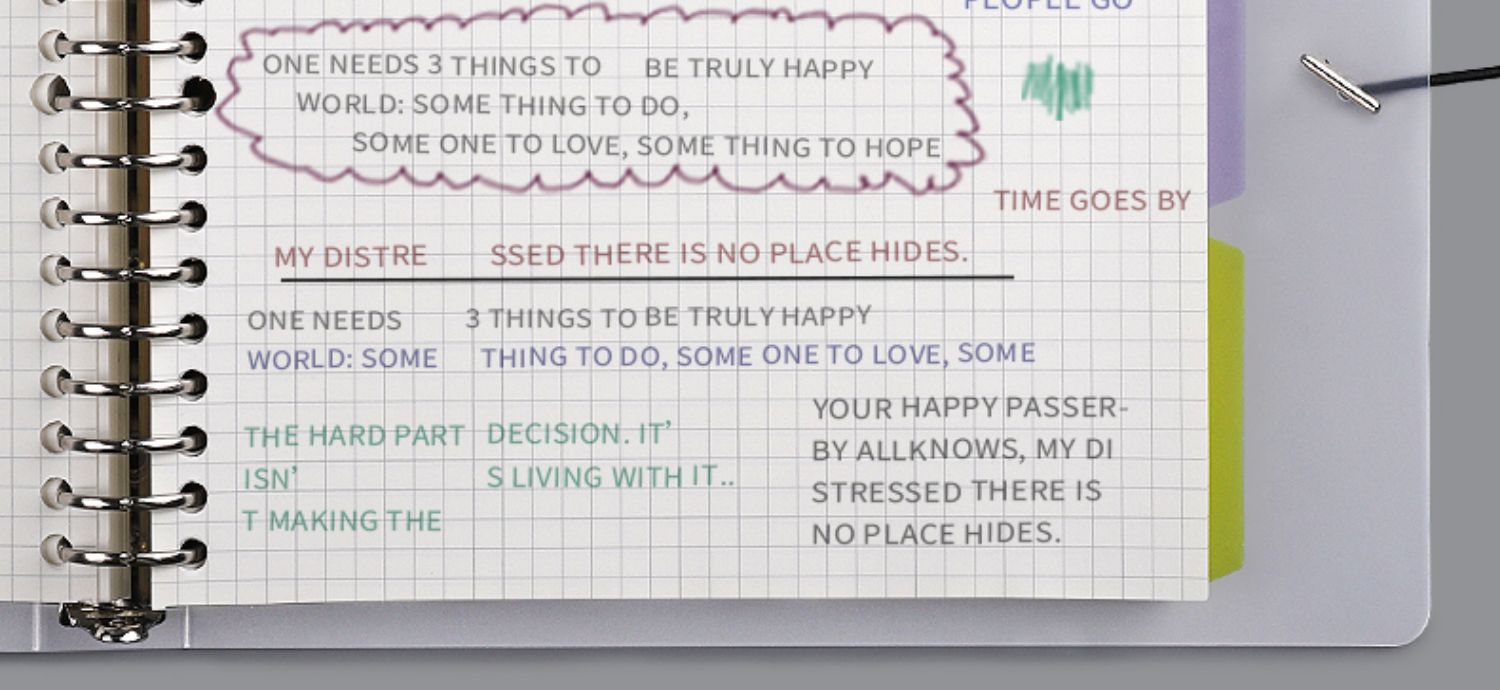 PEOPLE GO
ONE NEEDS 3 THINGS TO BE TRULY HAPPY
WORLD: SOME THING TO DO,
SOME ONE TO LOVE, SOME THING TO HOPE
TIME GOES BY
MY DISTRE SSED THERE IS NO PLACE HIDES.
ONE NEEDS 3 THINGS TO BE TRULY HAPPY
WORLD: SOME THING TO DO, SOME ONE TO LOVE, SOME
THE HARD PART
ISN'
T MAKING THE
DECISION. IT'
S LIVING WITH IT..
YOUR HAPPY PASSER-
BY ALLKNOWS, MY DI
STRESSED THERE IS
NO PLACE HIDES.